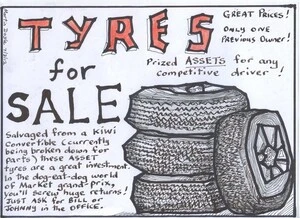 TYRES
GREAT PRICES!
ONLY ONE
PREVIOUS OWNER!
for
SALE
Prized ASSETS for any
competitive driver!
Salvaged from a Kiwi
Convertible (currently
being broken down for
parts) these ASSET
tyres are a great investment.
In the dog-eat-dog world
of Market grand-prix,
you'll screw huge returns!
JUST ASK for BILL or
JOHNNY in the OFFICE.